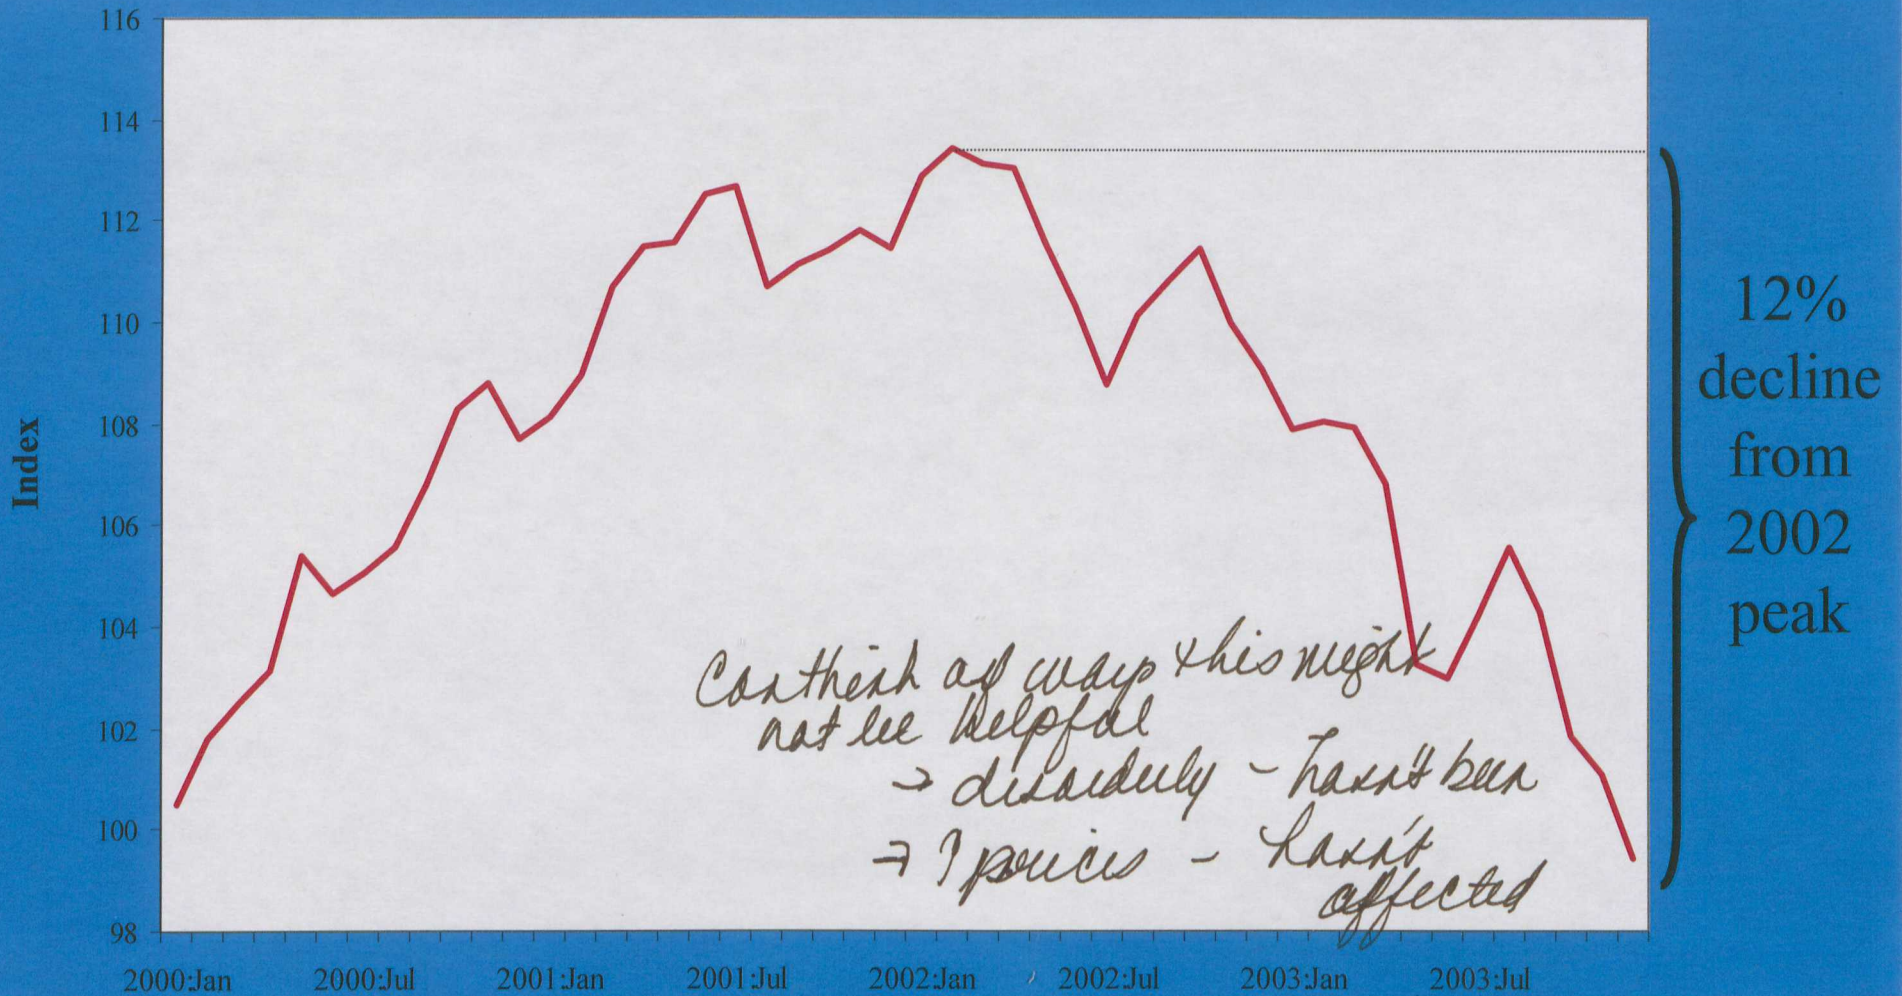 116
114
112
110
108
106
104
102
100
98
Index
2000:Jan 2000:Jul 2001:Jan 2001:Jul 2002:Jan 2002:Jul 2003:Jan 2003:Jul
12%
decline
from
2002
peak
Can think of ways this might
not be helpful
→ disorderly - hasn't been
→ prices - hasn't
affected